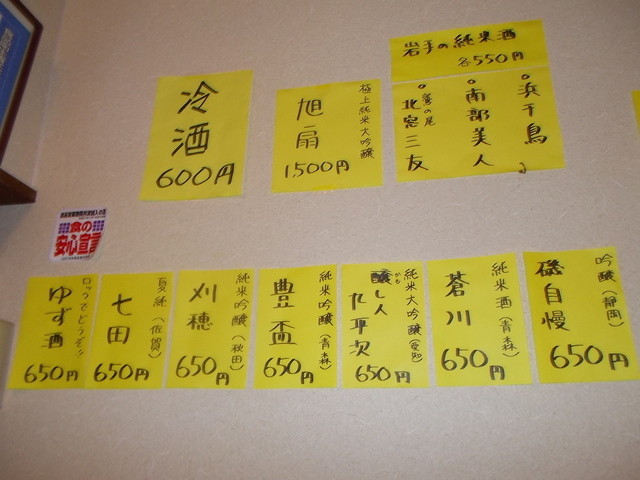 岩手の純米酒
各550円
浜千鳥
南部美人
鷲の尾
北窓三友
極上純米大吟醸
旭扇
1,500円
冷酒
600円
食の
安心宣言
吟醸(静岡)
磯自慢
650円
純米酒(青森)
蒼川
650円
純米大吟醸(愛知)
醸し人
かも
九平次
650円
純米吟醸(青森)
豊盃
650円
純米吟醸(秋田)
刈穂
650円
夏純(佐賀)
七田
650円
ロックでどうぞ!!
ゆず酒
650円